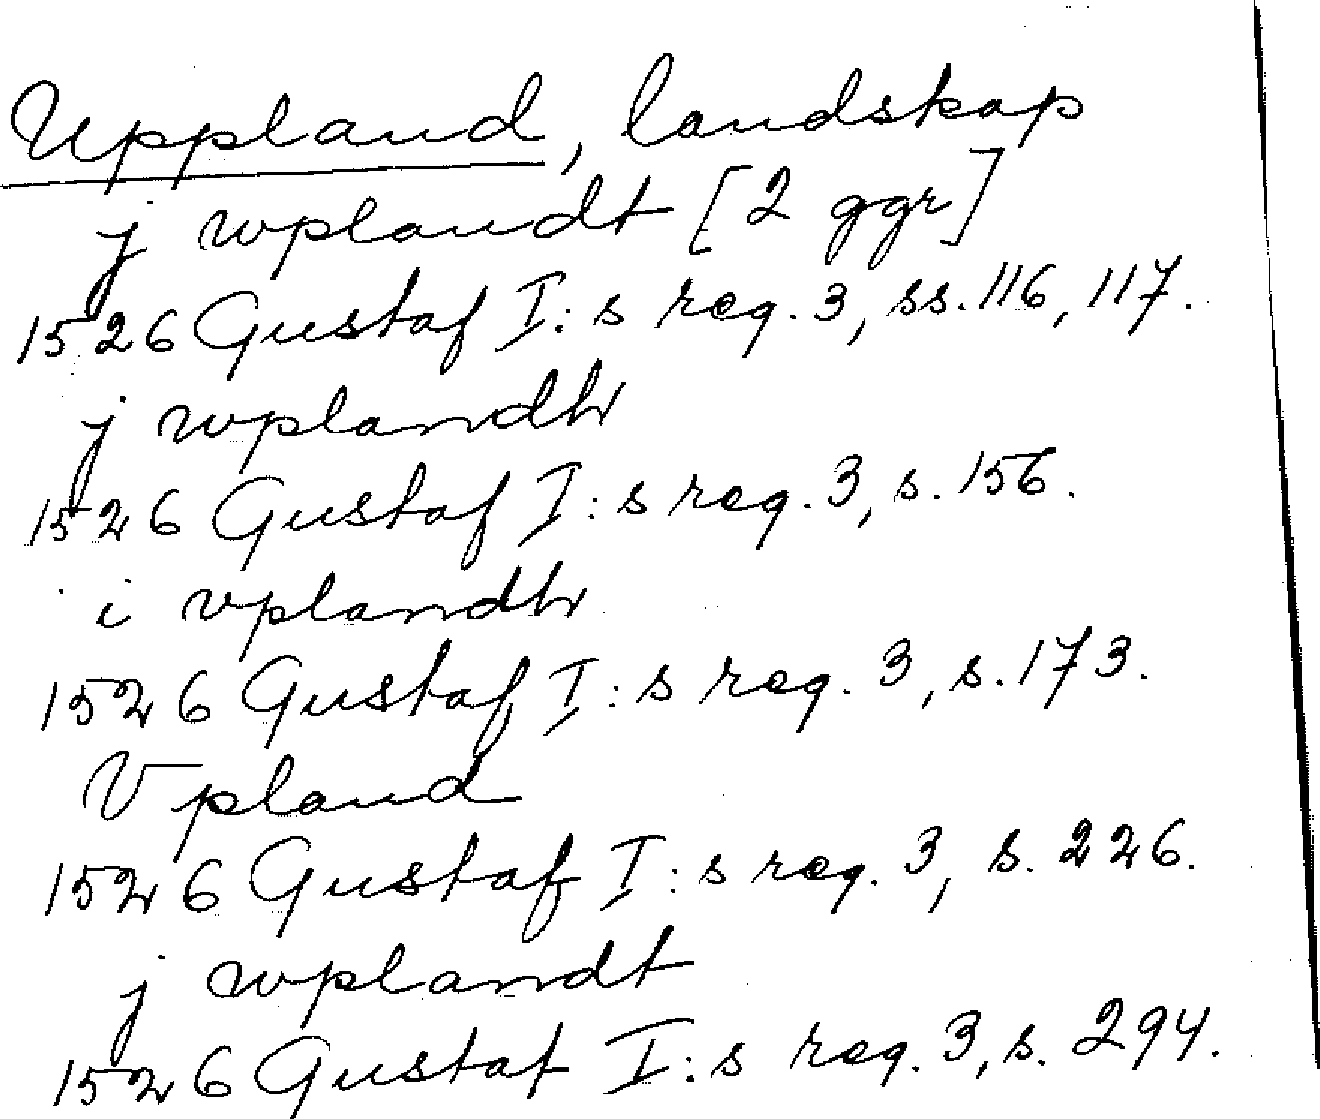 Uppland, landskap
j wplandt [2 ggr]
1526 Gustaf I:s reg. 3, ss. 116, 117.
j wplandh
1526 Gustaf I:s reg. 3, s. 156.
i vplandh
1526 Gustaf I:s reg. 3, s. 173.
Vpland
1526 Gustaf I:s reg. 3, s. 226.
j wplandt
1526 Gustaf I:s reg. 3, s. 294.